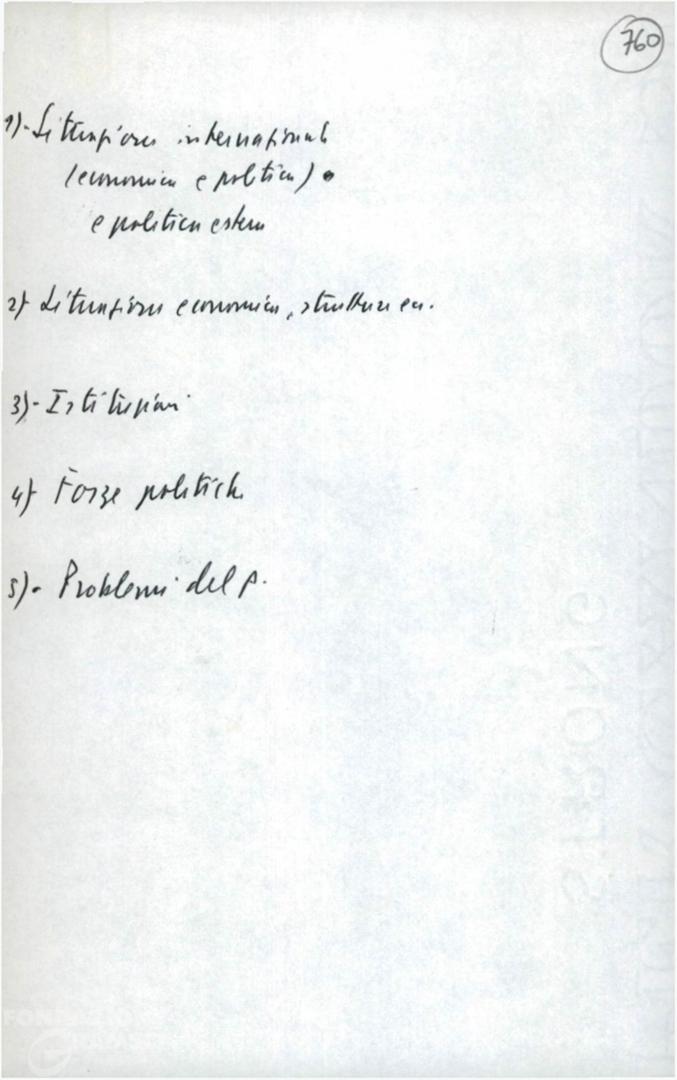 760
1)- Situazione internazionale
(economica e politica)
e politica estera
2) Situazione economica, strutture ec.
3)- Istituzioni
4) Forze politiche
5)- Problemi del p.
STRONG
FONDAZIONE
GRAMSCI